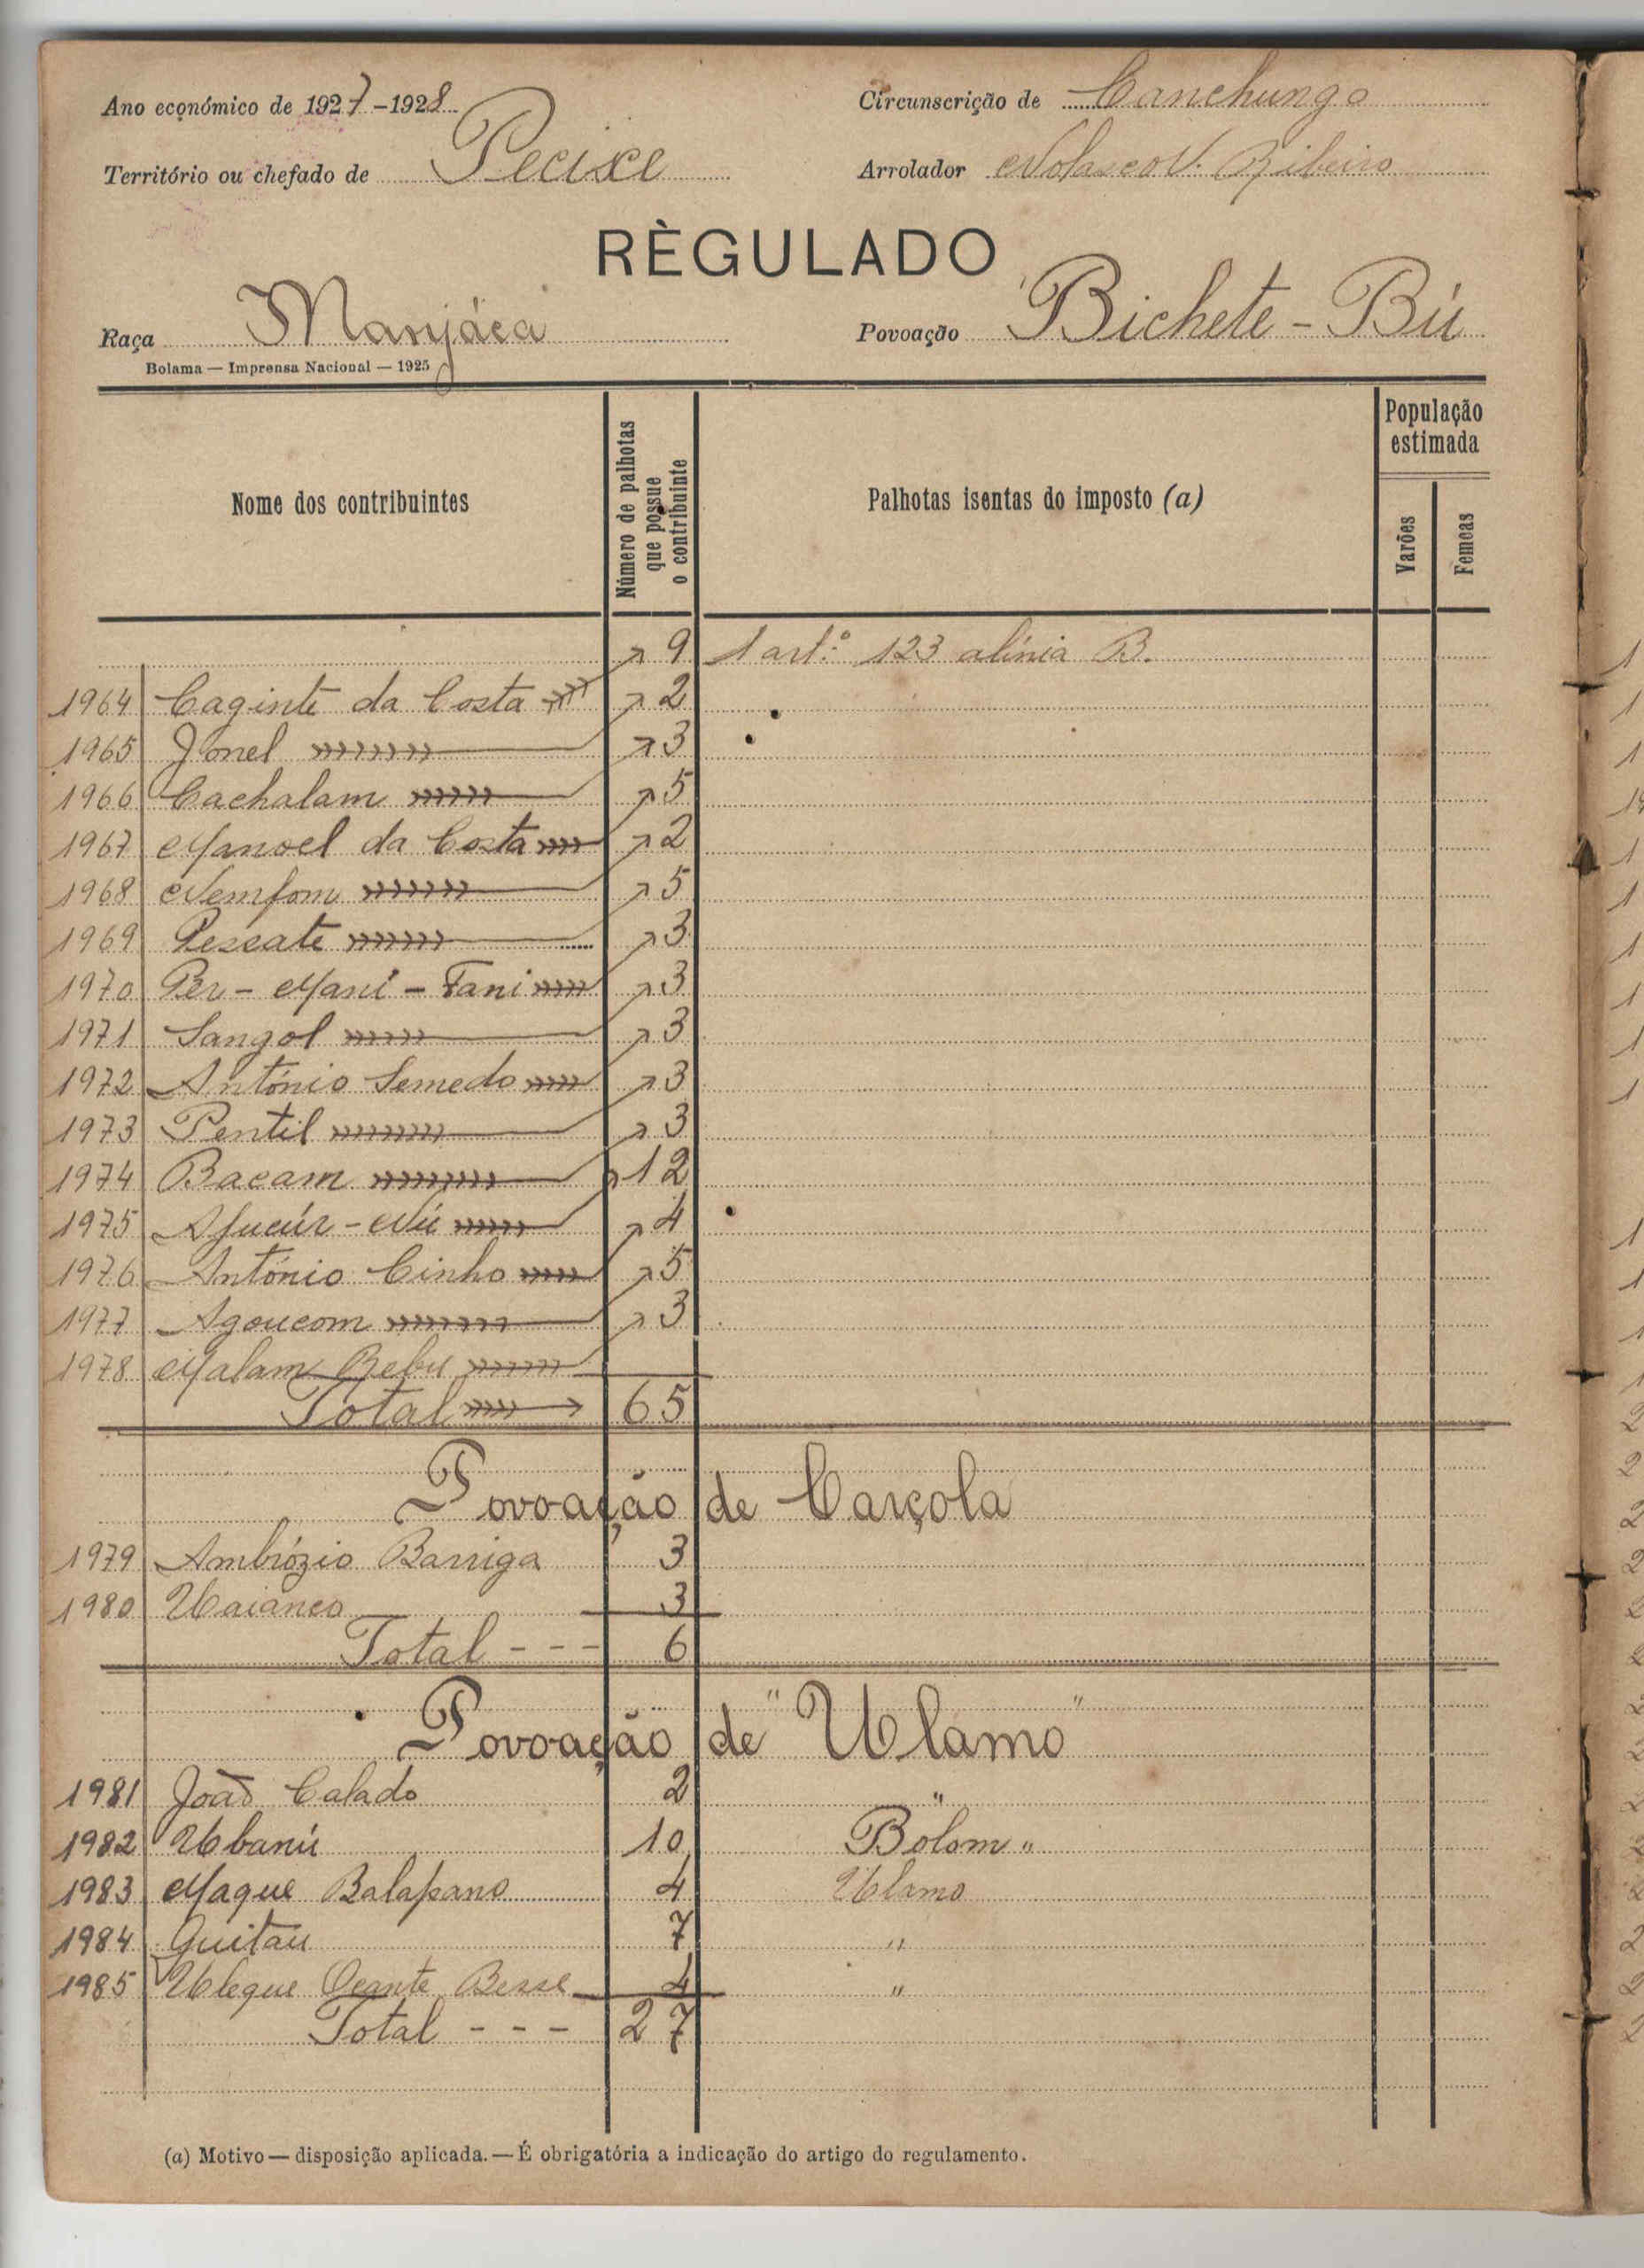 Ano económico de 1927-1928
Circunscrição de Canchungo
Território ou chefado de Pecixe
Arrolador Nolasco V. Ribeiro
RÈGULADO
Raça Manjáca
Povoação Bichete - Bú
Bolama — Imprensa Nacional — 1925
Nome dos contribuintes
Número de palhotas que possue o contribuinte
Palhotas isentas do imposto (a)
População estimada
Varões
Femeas
9 1 art.º 123 alínia B.
1964 Caginte da Costa 2
1965 Jonel 3
1966 Cachalam 5
1967 Manoel da Costa 2
1968 Nemfom 5
1969 Pescate 3
1970 Per - Mani - Fani 3
1971 Sangol 3
1972 António Semedo 3
1973 Pentil 3
1974 Bacam 12
1975 Afucúr - Nú 4
1976 António Cinho 5
1977 Agoucom 3
1978 Malam Bebu
Total 65
Povoação de Carçola
1979 Ambrózio Barriga 3
1980 Uaianco 3
Total - - - 6
Povoação de "Ulamo"
1981 João Calado 2 "
1982 Ubanú 10 Bolom "
1983 Maque Balapano 4 Ulamo
1984 Quitau 7 "
1985 Uleque Besse 4 "
Total - - - 27
(a) Motivo — disposição aplicada. — É obrigatória a indicação do artigo do regulamento.